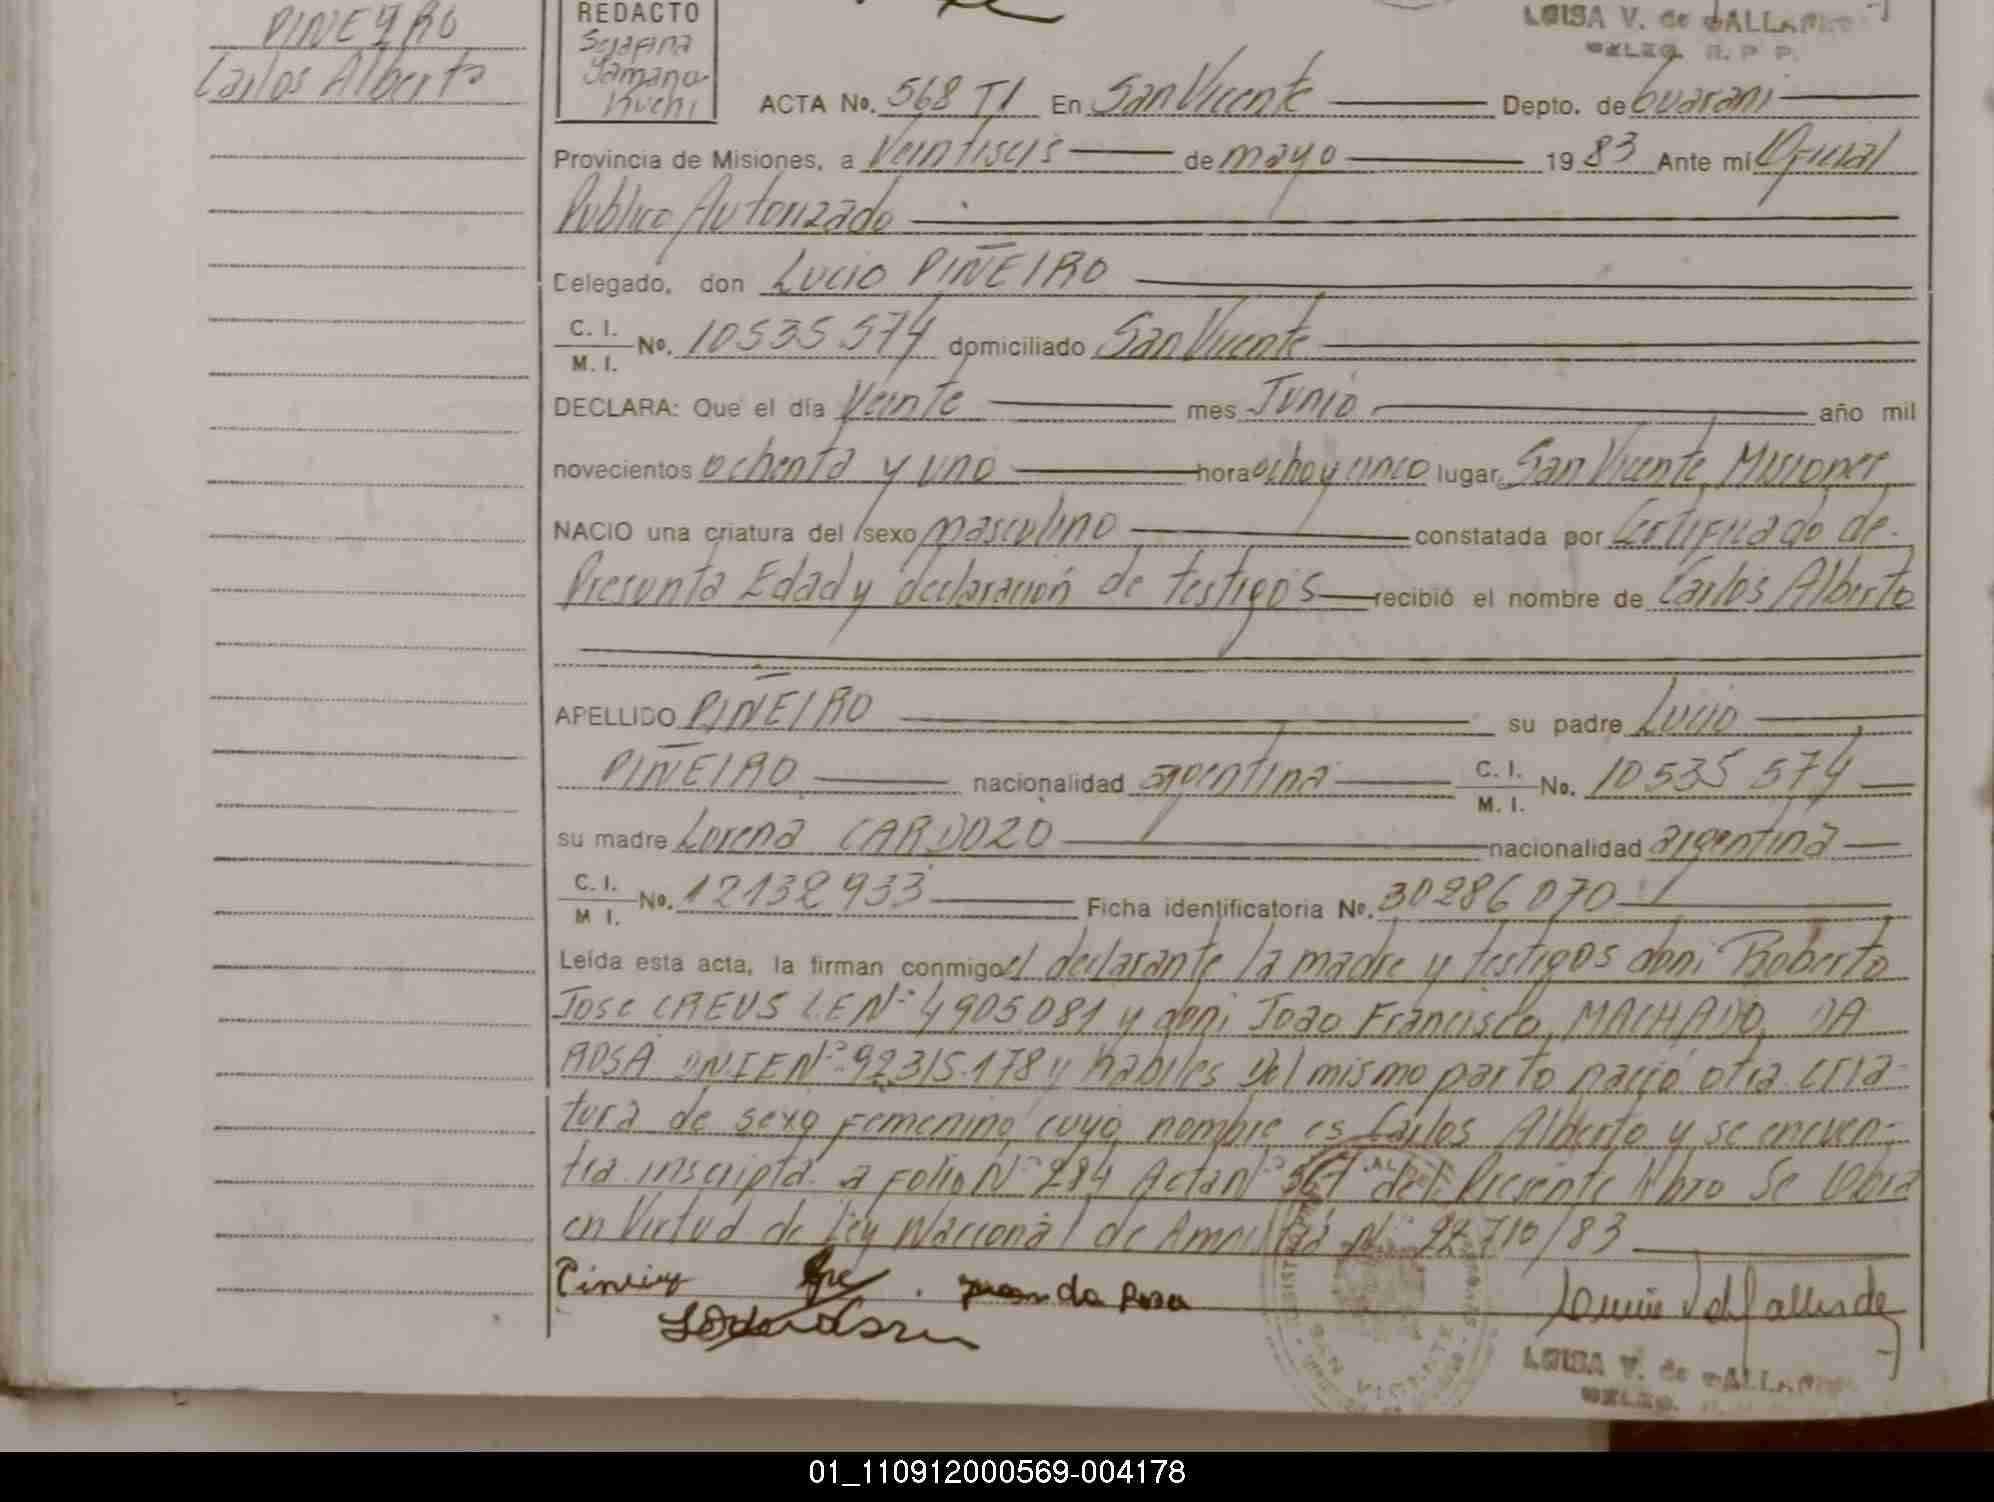 PIÑEYRO
Carlos Alberto
REDACTO
Serafina
Yamano
Kuchi
LUISA V. de GALLARDO
DELEG. R. P. P.
ACTA No. 568 T1 En San Vicente Depto. de Guaraní
Provincia de Misiones, a Veintiseis de mayo 1983 Ante mí Oficial
Publico Autorizado
Delegado, don Lucio PIÑEIRO
C. I.
M. I. No. 10535574 domiciliado San Vicente
DECLARA: Que el día Veinte mes Junio año mil
novecientos ochenta y uno hora ocho y cinco lugar San Vicente, Misiones
NACIO una criatura del sexo masculino constatada por Certificado de
Presunta Edad y declaración de testigos recibió el nombre de Carlos Alberto
APELLIDO PIÑEIRO su padre Lucio
PIÑEIRO nacionalidad argentina C. I. M. I. No. 10535574
su madre Lorena CARDOZO nacionalidad argentina
C. I. M I. No. 12132933 Ficha identificatoria No. 30286070
Leída esta acta, la firman conmigo el declarante la madre y testigos don: Roberto
Jose CREUS L.E.Nº 4905081 y don: Joao Francisco MACHADO DA
ROSA DNIENº 92.315.178 y habiles Del mismo parto nació otra cria-
tura de sexo femenino cuyo nombre es Carlos Alberto y se encuen-
tra inscripta a folio Nº 284 Acta Nº 567 del Presente libro Se labra
en Virtud de Ley Nacional de Amnistía Nº 22.710/83
da Rosa
SAN VICENTE
LUISA V. de GALLARDO
DELEG.
01_110912000569-004178